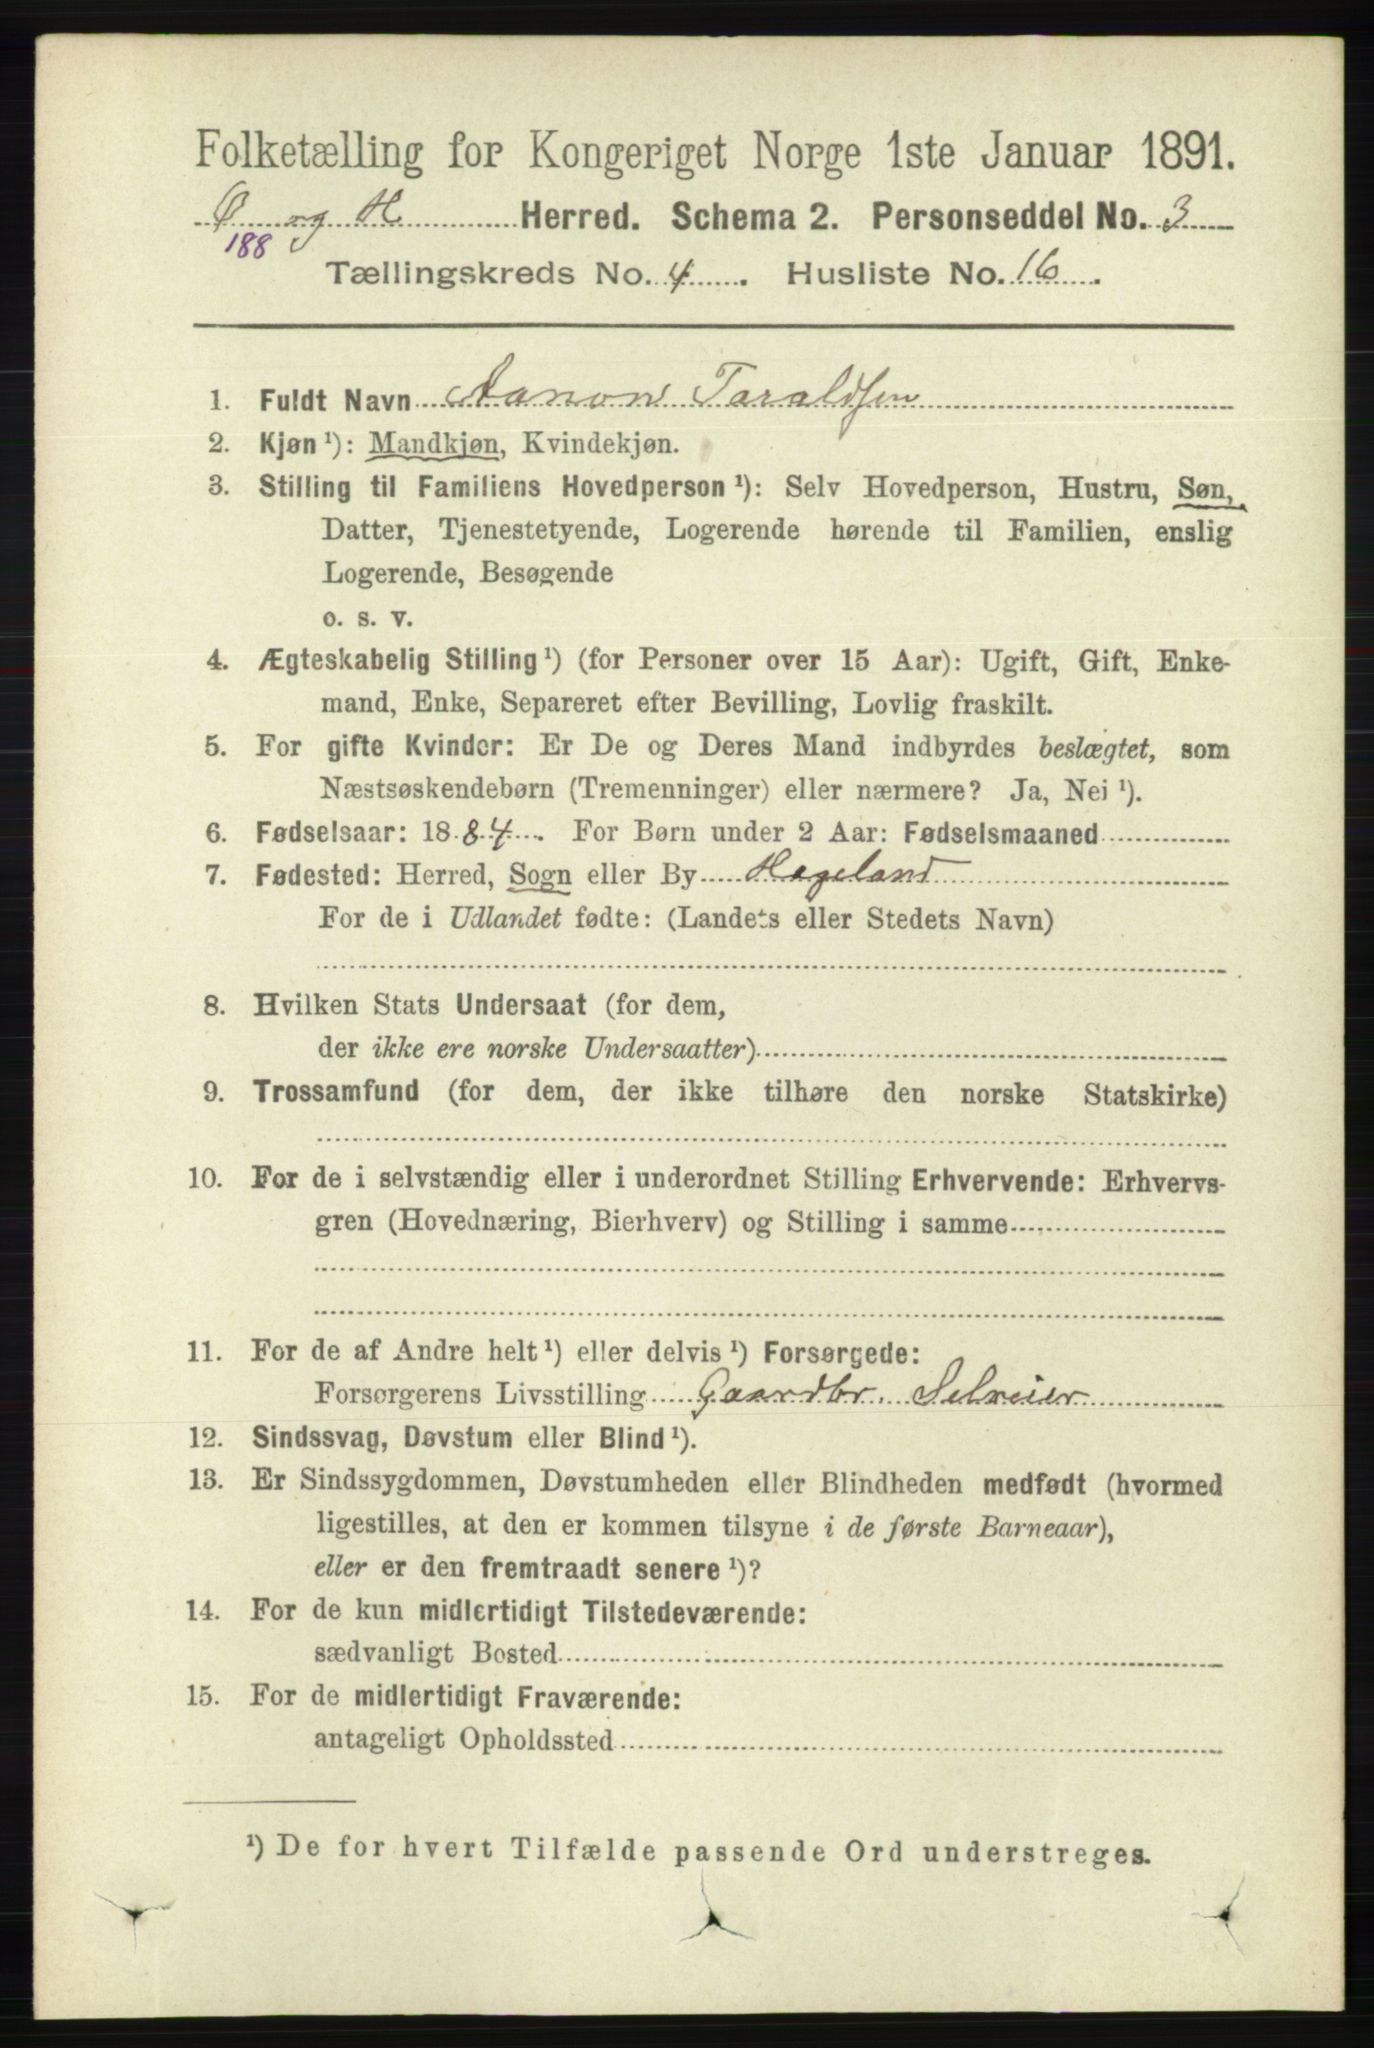 Folketælling for Kongeriget Norge 1ste Januar 1891.
Ø og H Herred. Schema 2. Personseddel No. 3
188
Tællingskreds No. 4. Husliste No. 16.
1. Fuldt Navn Aanon Taraldsen
2. Kjøn ¹): Mandkjøn, Kvindekjøn.
3. Stilling til Familiens Hovedperson ¹): Selv Hovedperson, Hustru, Søn,
Datter, Tjenestetyende, Logerende hørende til Familien, enslig
Logerende, Besøgende
o. s. v.
4. Ægteskabelig Stilling ¹) (for Personer over 15 Aar): Ugift, Gift, Enke-
mand, Enke, Separeret efter Bevilling, Lovlig fraskilt.
5. For gifte Kvinder: Er De og Deres Mand indbyrdes beslægtet, som
Næstsøskendebørn (Tremenninger) eller nærmere? Ja, Nei ¹).
6. Fødselsaar: 1884. For Børn under 2 Aar: Fødselsmaaned
7. Fødested: Herred, Sogn eller By Hægeland
For de i Udlandet fødte: (Landets eller Stedets Navn)
8. Hvilken Stats Undersaat (for dem,
der ikke ere norske Undersaatter)
9. Trossamfund (for dem, der ikke tilhøre den norske Statskirke)
10. For de i selvstændig eller i underordnet Stilling Erhvervende: Erhvervs-
gren (Hovednæring, Bierhverv) og Stilling i samme
11. For de af Andre helt ¹) eller delvis ¹) Forsørgede:
Forsørgerens Livsstilling Gaardbr. Selveier
12. Sindssvag, Døvstum eller Blind ¹).
13. Er Sindssygdommen, Døvstumheden eller Blindheden medfødt (hvormed
ligestilles, at den er kommen tilsyne i de første Barneaar),
eller er den fremtraadt senere ¹)?
14. For de kun midlertidigt Tilstedeværende:
sædvanligt Bosted
15. For de midlertidigt Fraværende:
antageligt Opholdssted
¹) De for hvert Tilfælde passende Ord understreges.